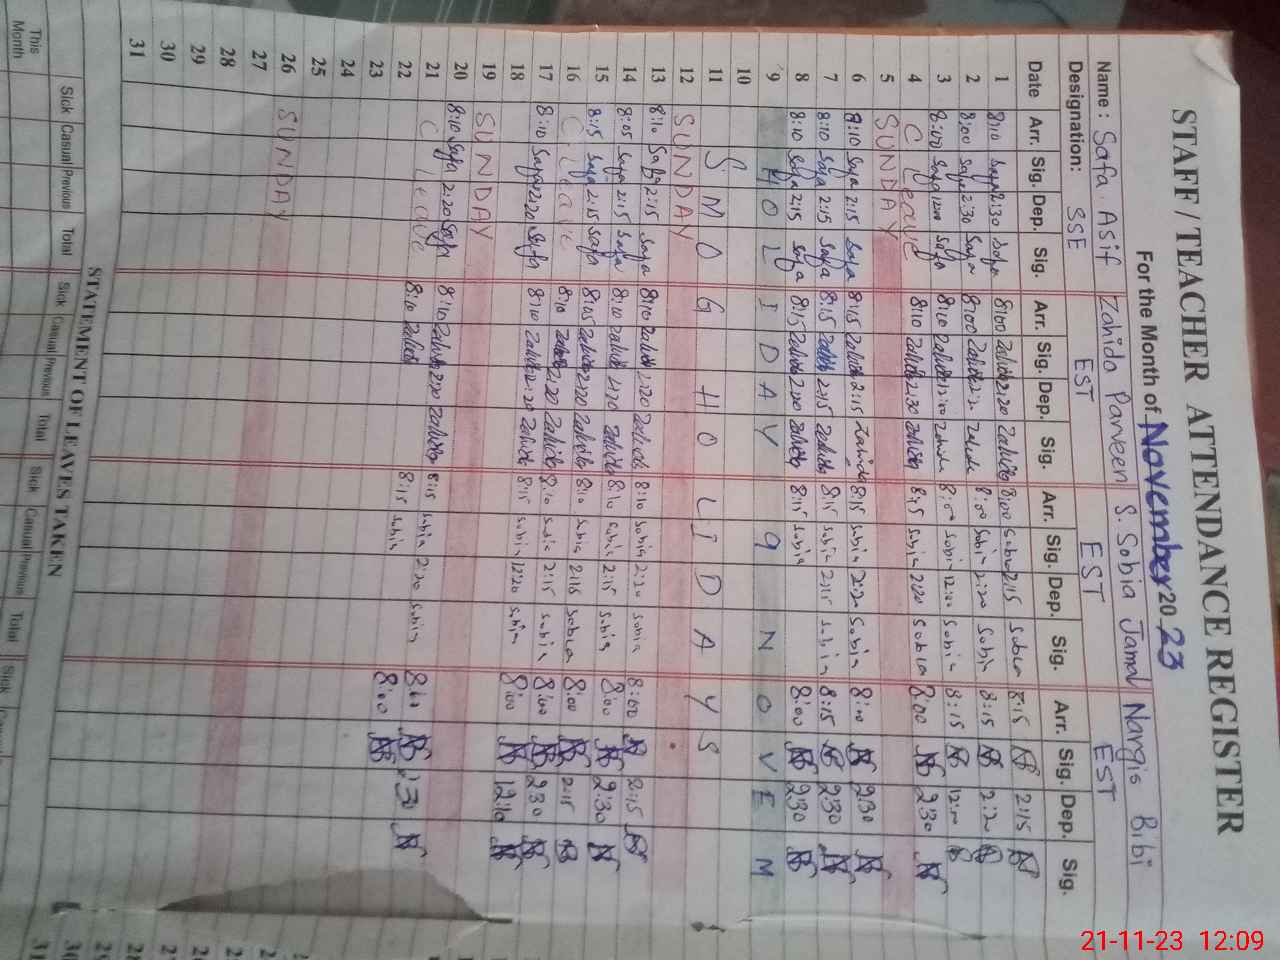 STAFF / TEACHER ATTENDANCE REGISTER
For the Month of November 2023
Name : Safa Asif Zahida Parveen S. Sobia Jamal Nargis Bibi
Designation: SSE EST EST EST
Date Arr. Sig. Dep. Sig. Arr. Sig. Dep. Sig. Arr. Sig. Dep. Sig. Arr. Sig. Dep. Sig.
1 8:10 Safa 2:30 Safa 8:00 Zahida 2:20 Zahida 8:00 Sobia 2:15 Sobia 8:15 2:15
2 8:00 Safa 2:30 Safa 8:00 Zahida Zahida 8:00 Sobia 2:20 Sobia 8:15 2:20
3 8:00 Safa 12:00 Safa 8:10 Zahida 12:00 Zahida 8:00 Sobia 12:00 Sobia 8:15 12:00
4 C Leave 8:10 Zahida 2:30 Zahida Sobia 2:20 Sobia 8:00 2:30
5 SUNDAY
6 8:10 Safa 2:15 Safa 8:15 Zahida 2:15 Zahida 8:15 Sobia 2:20 Sobia 2:30
7 8:10 Safa 2:15 Safa 8:15 Zahida 2:15 Zahida 8:15 Sobia 2:15 Sobia 8:15 2:30
8 8:10 Safa 2:15 Safa 8:15 Zahida Zahida 8:15 Sobia 8:00 2:30
9 HOLIDAY 9 NOVEM
10
11 SMOG HOLIDAYS
12 SUNDAY
13 8:10 Safa 2:15 Safa 8:10 Zahida 2:20 Zahida 8:10 Sobia 2:20 Sobia 8:00 2:15
14 8:05 Safa 2:15 Safa 8:10 Zahida 2:20 Zahida 8:10 Sobia 2:15 Sobia 8:00 2:30
15 8:15 Safa 2:15 Safa 8:05 Zahida 2:20 Zahida 8:10 Sobia 2:15 Sobia 8:00 2:15
16 C Leave 8:10 Zahida 2:20 Zahida 8:10 Sobia 2:15 Sobia 8:00 2:30
17 8:10 Safa 12:20 Safa 8:10 Zahida 12:20 Zahida 8:15 Sobia 12:20 Sobia 8:00 12:10
18
19 SUNDAY
20 8:10 Safa 2:20 Safa 8:10 Zahida 2:20 Zahida 8:15 Sobia 2:20 Sobia 8:00 2:30
21 C Leave 8:10 Zahida 8:15 Sobia 8:00
22
23
24
25
26 SUNDAY
27
28
29
30
31
STATEMENT OF LEAVES TAKEN
Sick Casual Previous Total Sick Casual Previous Total Sick Casual Previous Total Sick
This Month
21-11-23 12:09